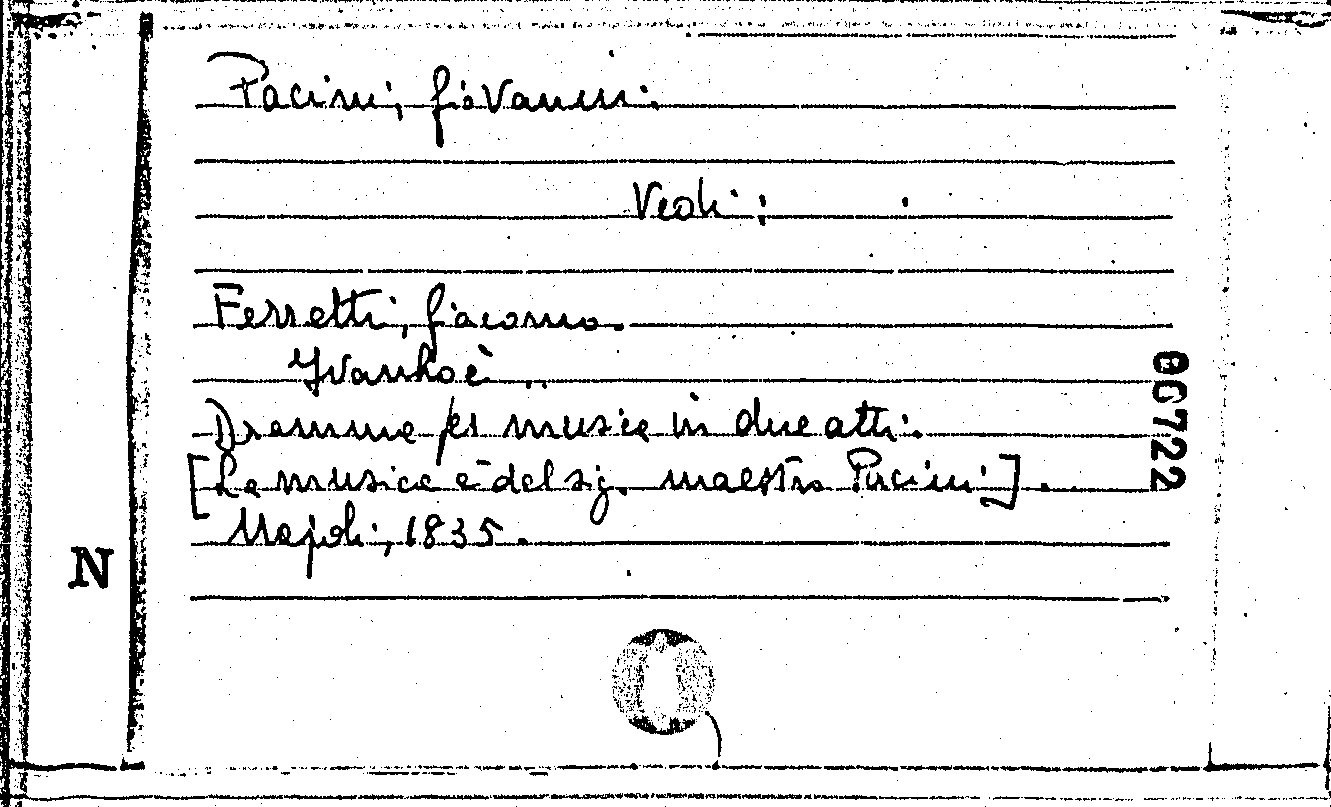 Pacini, Giovanni.
Vedi:
Ferretti, Giacomo.
Ivanhoè
Dramma per musica in due atti.
[La musica è del sig. maestro Pacini].
Napoli, 1835.
N
00722